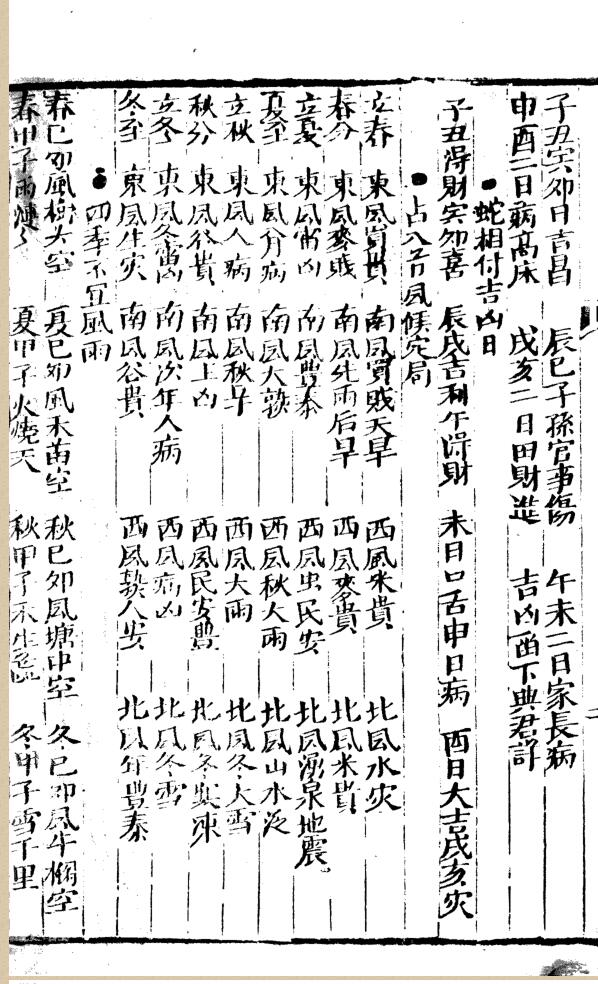 子丑寅卯日吉昌 辰巳子孫官事傷 午未二日家長病
申酉二日病高床 戌亥二日田財進 吉凶面下與君詳
●蛇相付吉凶日
子丑得財寅卯喜 辰戌吉利午得財 未日口舌申日病 酉日大吉戌亥灾
●占八节風候定局
立春 東風買貴 南風買賎天旱 西風米貴 北風水灾
春分 東風麥賎 南風先雨后旱 西風麥貴 北風米貴
立夏 東風雷凶 南風豐泰 西風虫民安 北風湧泉地震
夏至 東風人病 南風大熱 西風秋大雨 北風山水泛
立秋 東風人病 南風秋旱 西風大雨 北風冬大雪
秋分 東風谷貴 南風上凶 西風民安豐 北風冬寒凍
立冬 東風冬雷凶 南風次年人病 西風病凶 北風冬雪
冬至 東風生灾 南風谷貴 西風熱人安 北風年豐泰
●四季不宜風雨
春巳卯風樹头空 夏巳卯風禾苗空 秋巳卯風塘中空 冬巳卯風牛欄空
春甲子雨 夏甲子火燒天 秋甲子禾生 冬甲子雪千里